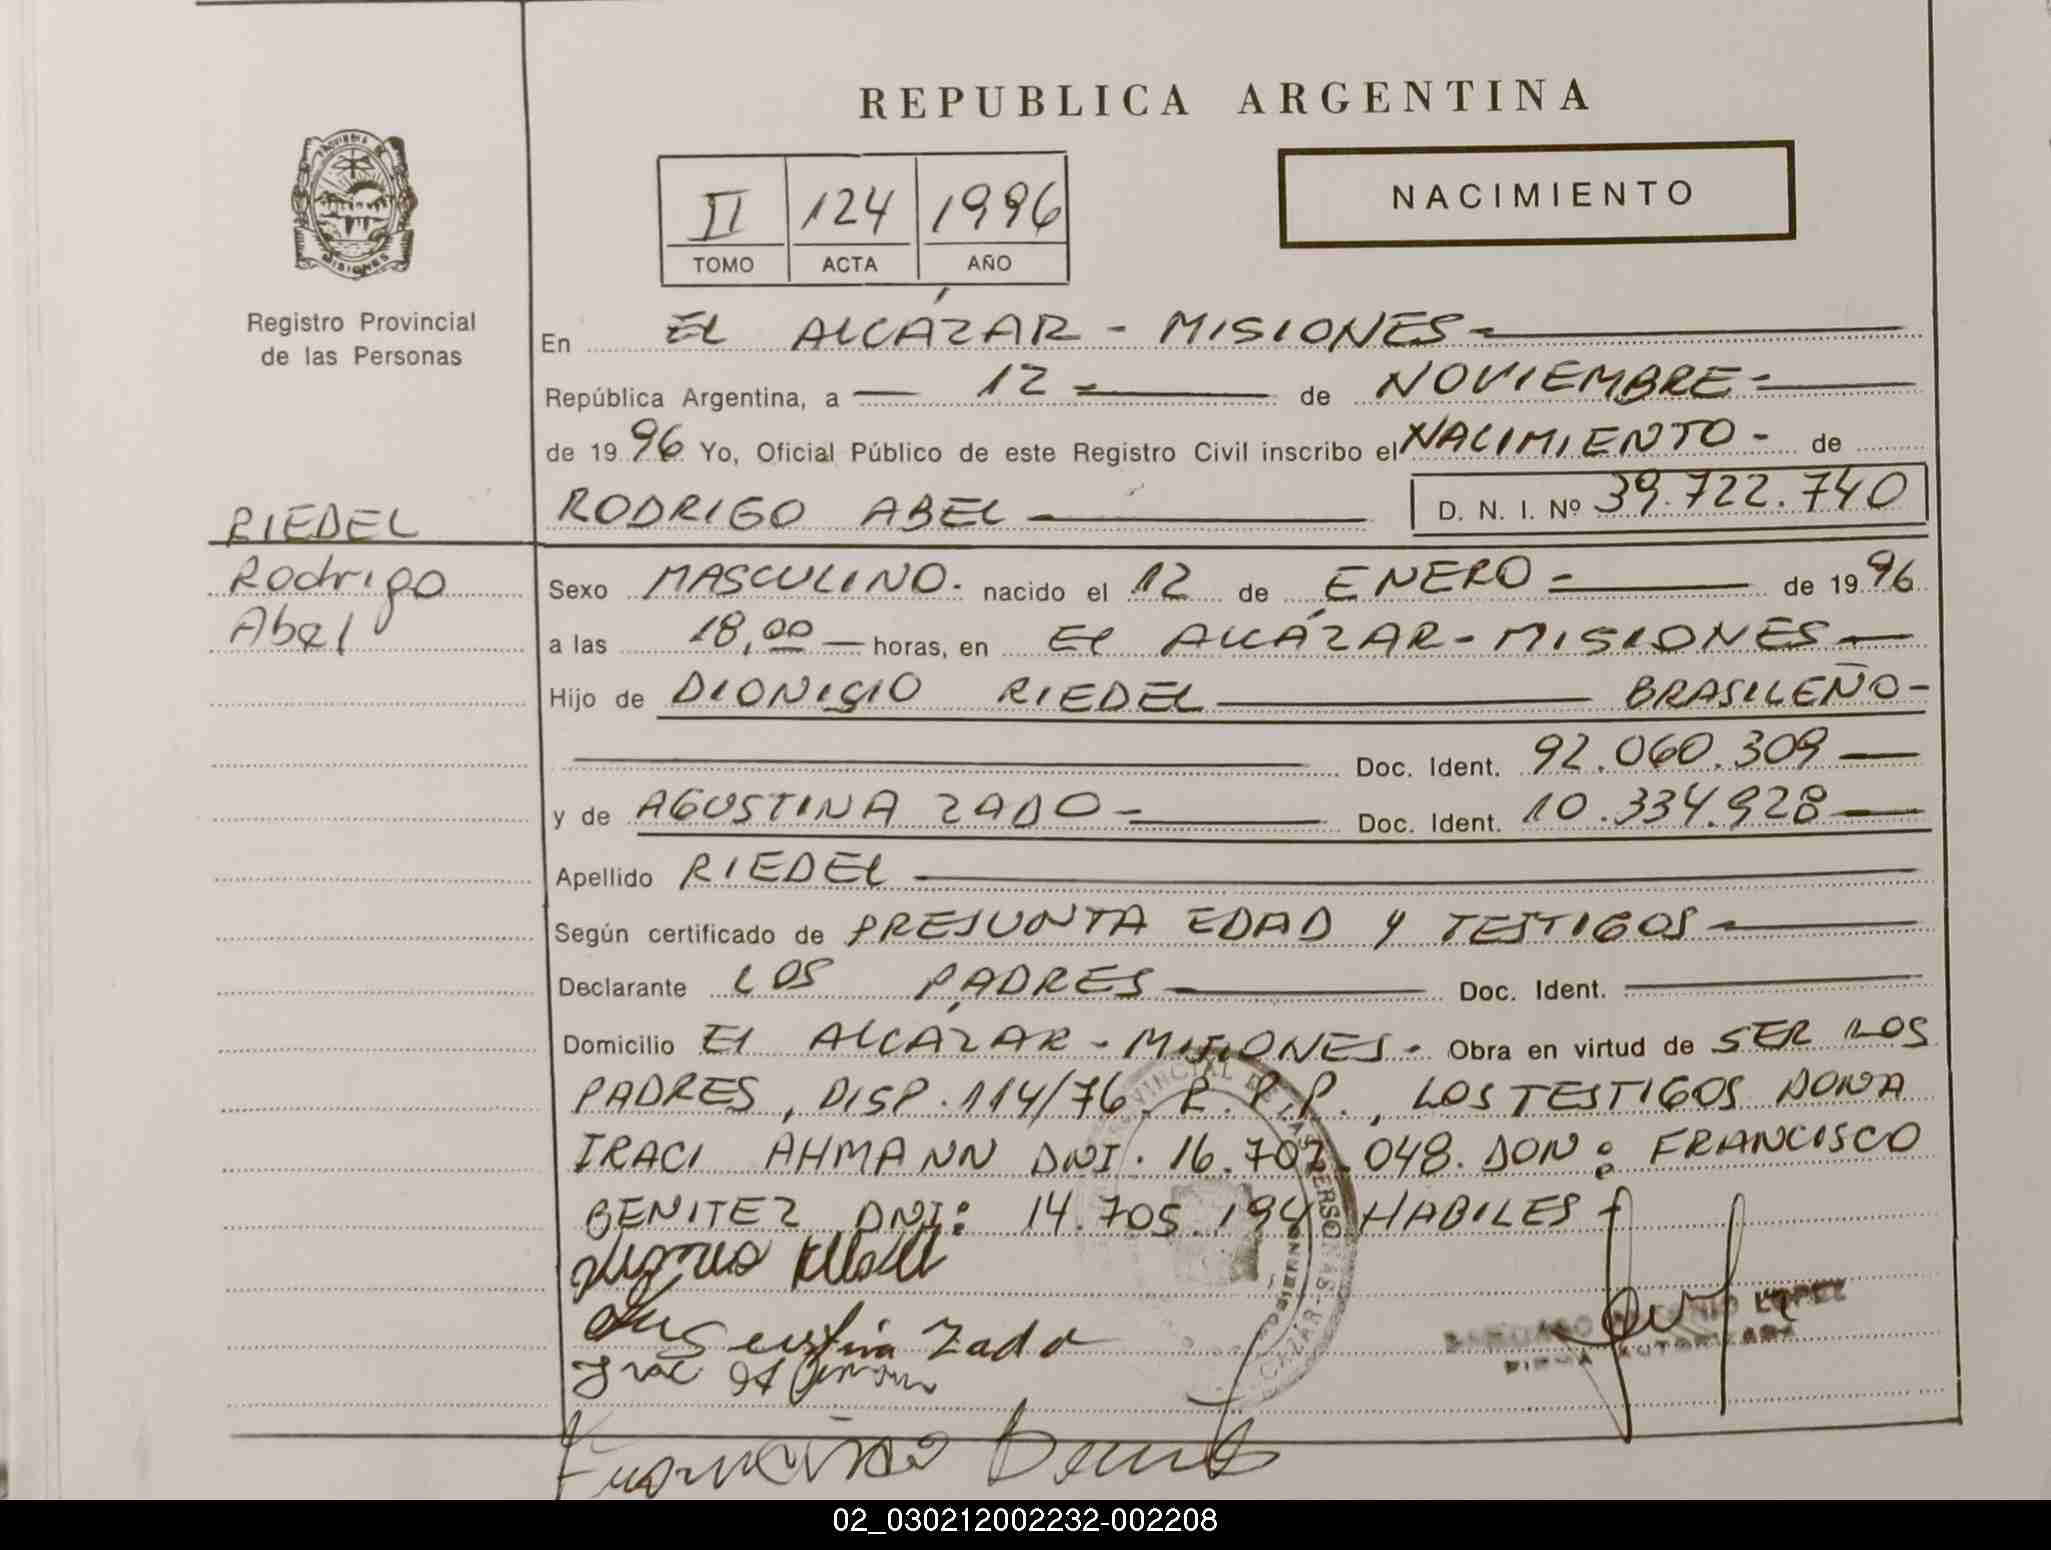 REPUBLICA ARGENTINA
PROVINCIA DE
MISIONES
NACIMIENTO
II 124 1996
TOMO ACTA AÑO
Registro Provincial
de las Personas
En EL ALCÁZAR - MISIONES -
República Argentina, a — 12 - de NOVIEMBRE -
de 1996 Yo, Oficial Público de este Registro Civil inscribo el NACIMIENTO - de
RIEDEL
Rodrigo
Abel
RODRIGO ABEL — D. N. I. Nº 39.722.740
Sexo MASCULINO - nacido el 12 de ENERO - de 1996
a las 18,00 — horas, en El ALCÁZAR - MISIONES —
Hijo de DIONISIO RIEDEL — BRASILEÑO -
Doc. Ident. 92.060.309 —
y de AGUSTINA ZADO - Doc. Ident. 10.334.928 —
Apellido RIEDEL —
Según certificado de PRESUNTA EDAD Y TESTIGOS —
Declarante LOS PADRES — Doc. Ident. —
Domicilio El ALCÁZAR - MISIONES - Obra en virtud de SER LOS
PADRES, DISP. 114/76. R.P.P., LOS TESTIGOS DONA
IRACI AHMANN DNI. 16.707.048. DON: FRANCISCO
BENITEZ DNI: 14.705.194 HABILES -
Agustina Zado
Francisco Benitez
ANTONIO LOPEZ
FIRMA AUTORIZADA
02_030212002232-002208